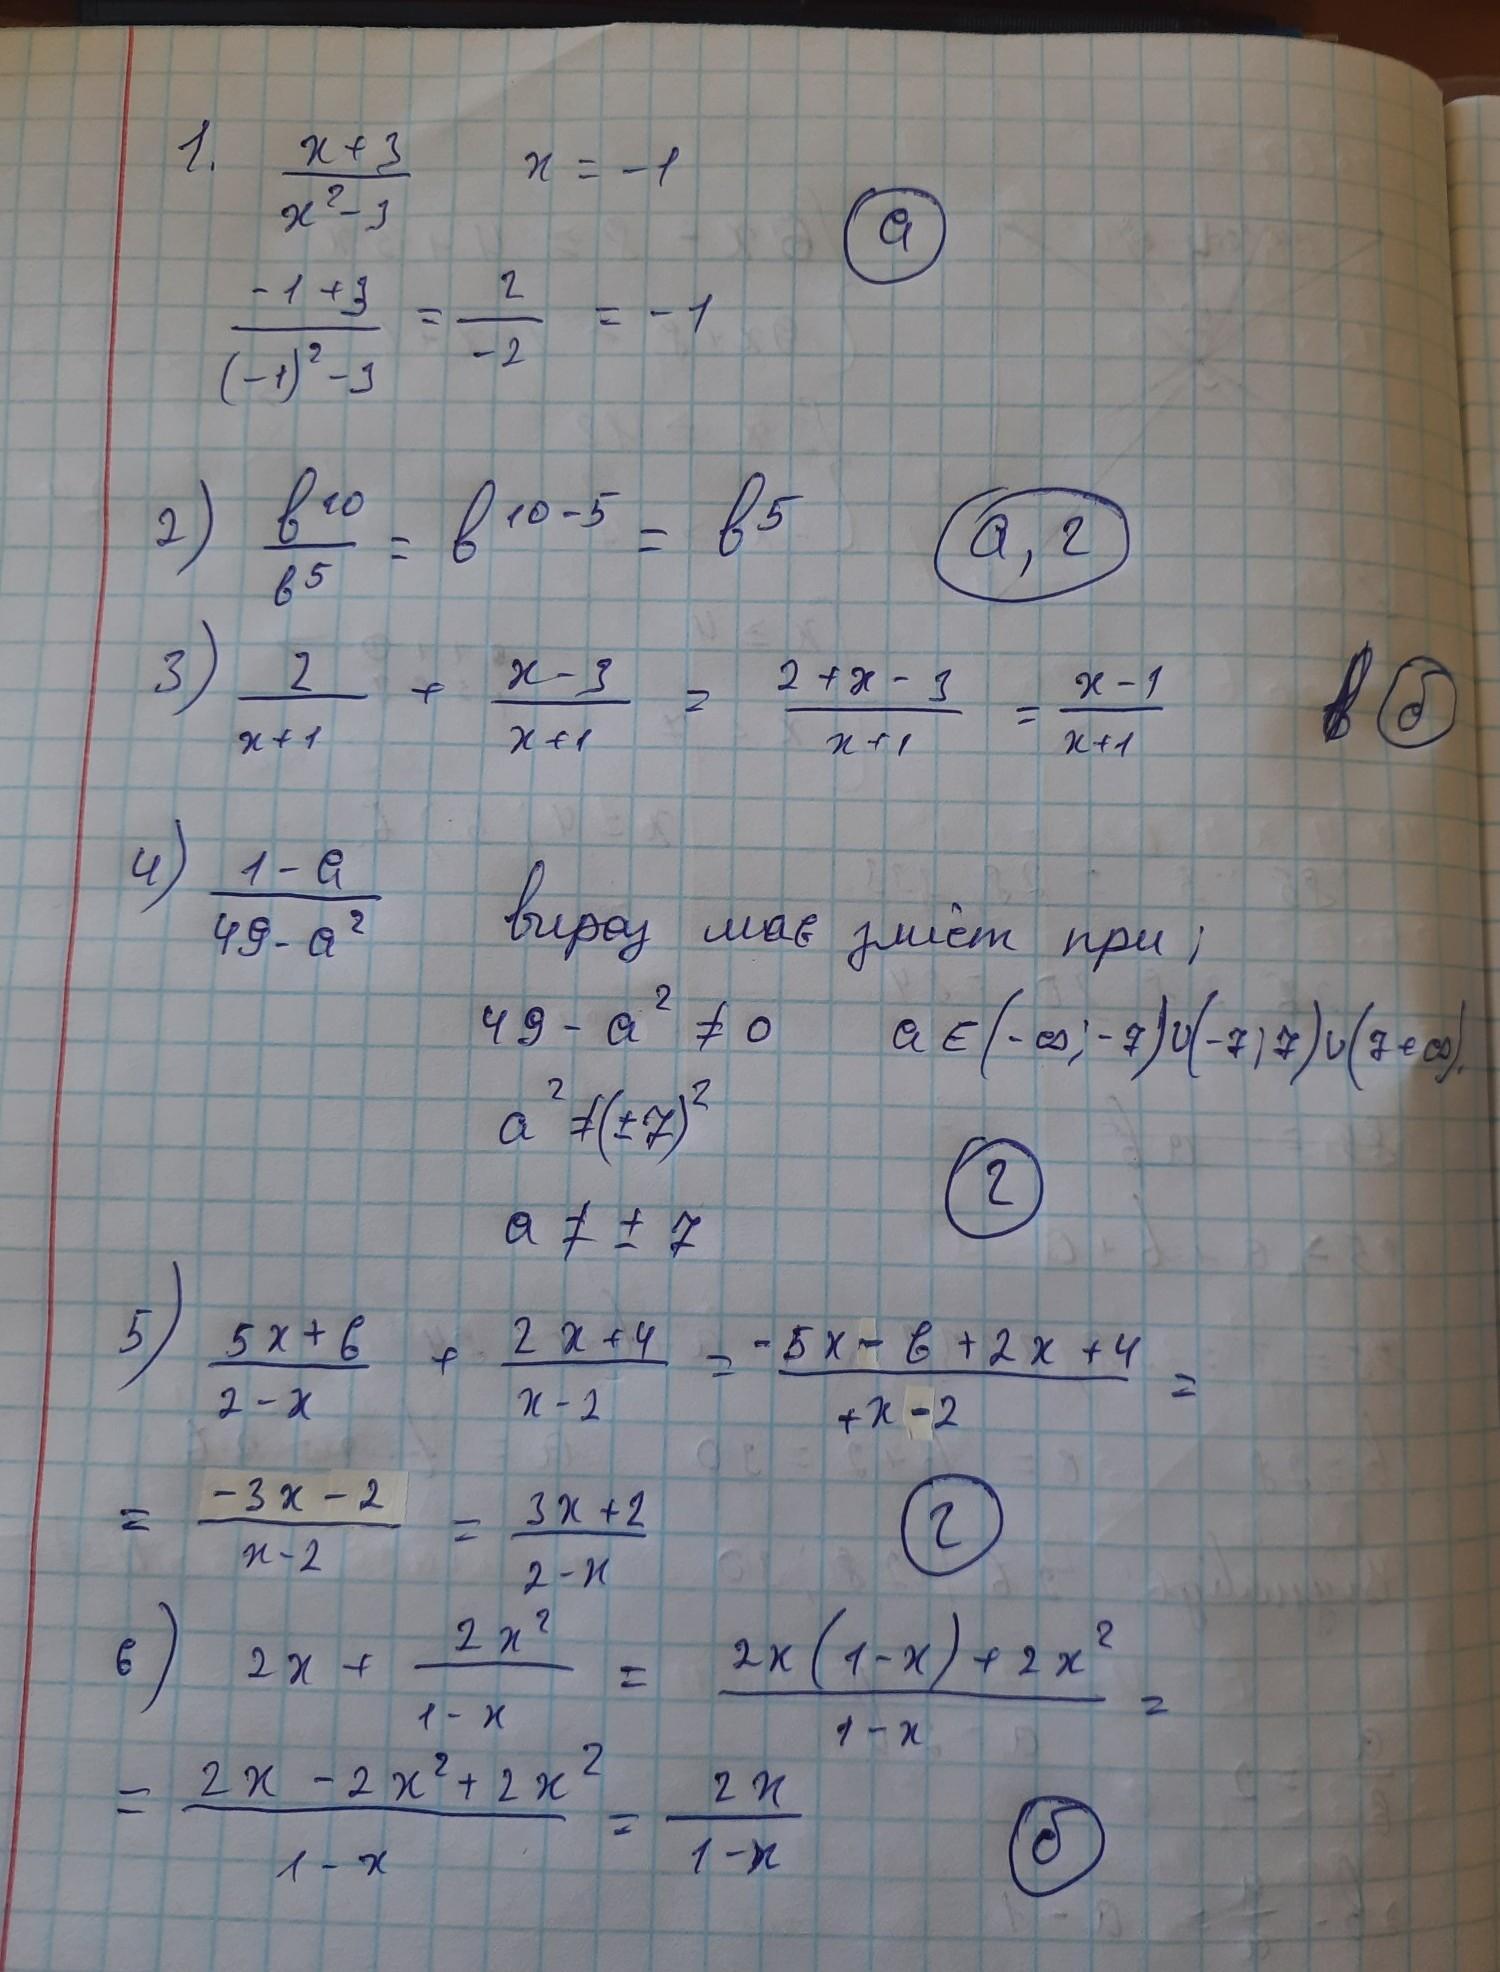 1. (x+3)/(x²-3) x = -1
а
(-1+3)/((-1)²-3) = 2/-2 = -1
2) в¹⁰/в⁵ = в¹⁰⁻⁵ = в⁵ а, г
3) 2/(x+1) + (x-3)/(x+1) = (2+x-3)/(x+1) = (x-1)/(x+1) б
4) (1-a)/(49-a²) вираз має зміст при;
49-a² ≠ 0 a ∈ (-∞; -7) ∪ (-7; 7) ∪ (7 +∞).
a² ≠ (±7)²
г
a ≠ ±7
5) (5x+6)/(2-x) + (2x+4)/(x-2) = (-5x-6+2x+4)/(+x-2) =
= (-3x-2)/(x-2) = (3x+2)/(2-x) г
6) 2x + 2x²/(1-x) = (2x(1-x)+2x²)/(1-x) =
= (2x-2x²+2x²)/(1-x) = 2x/(1-x) б